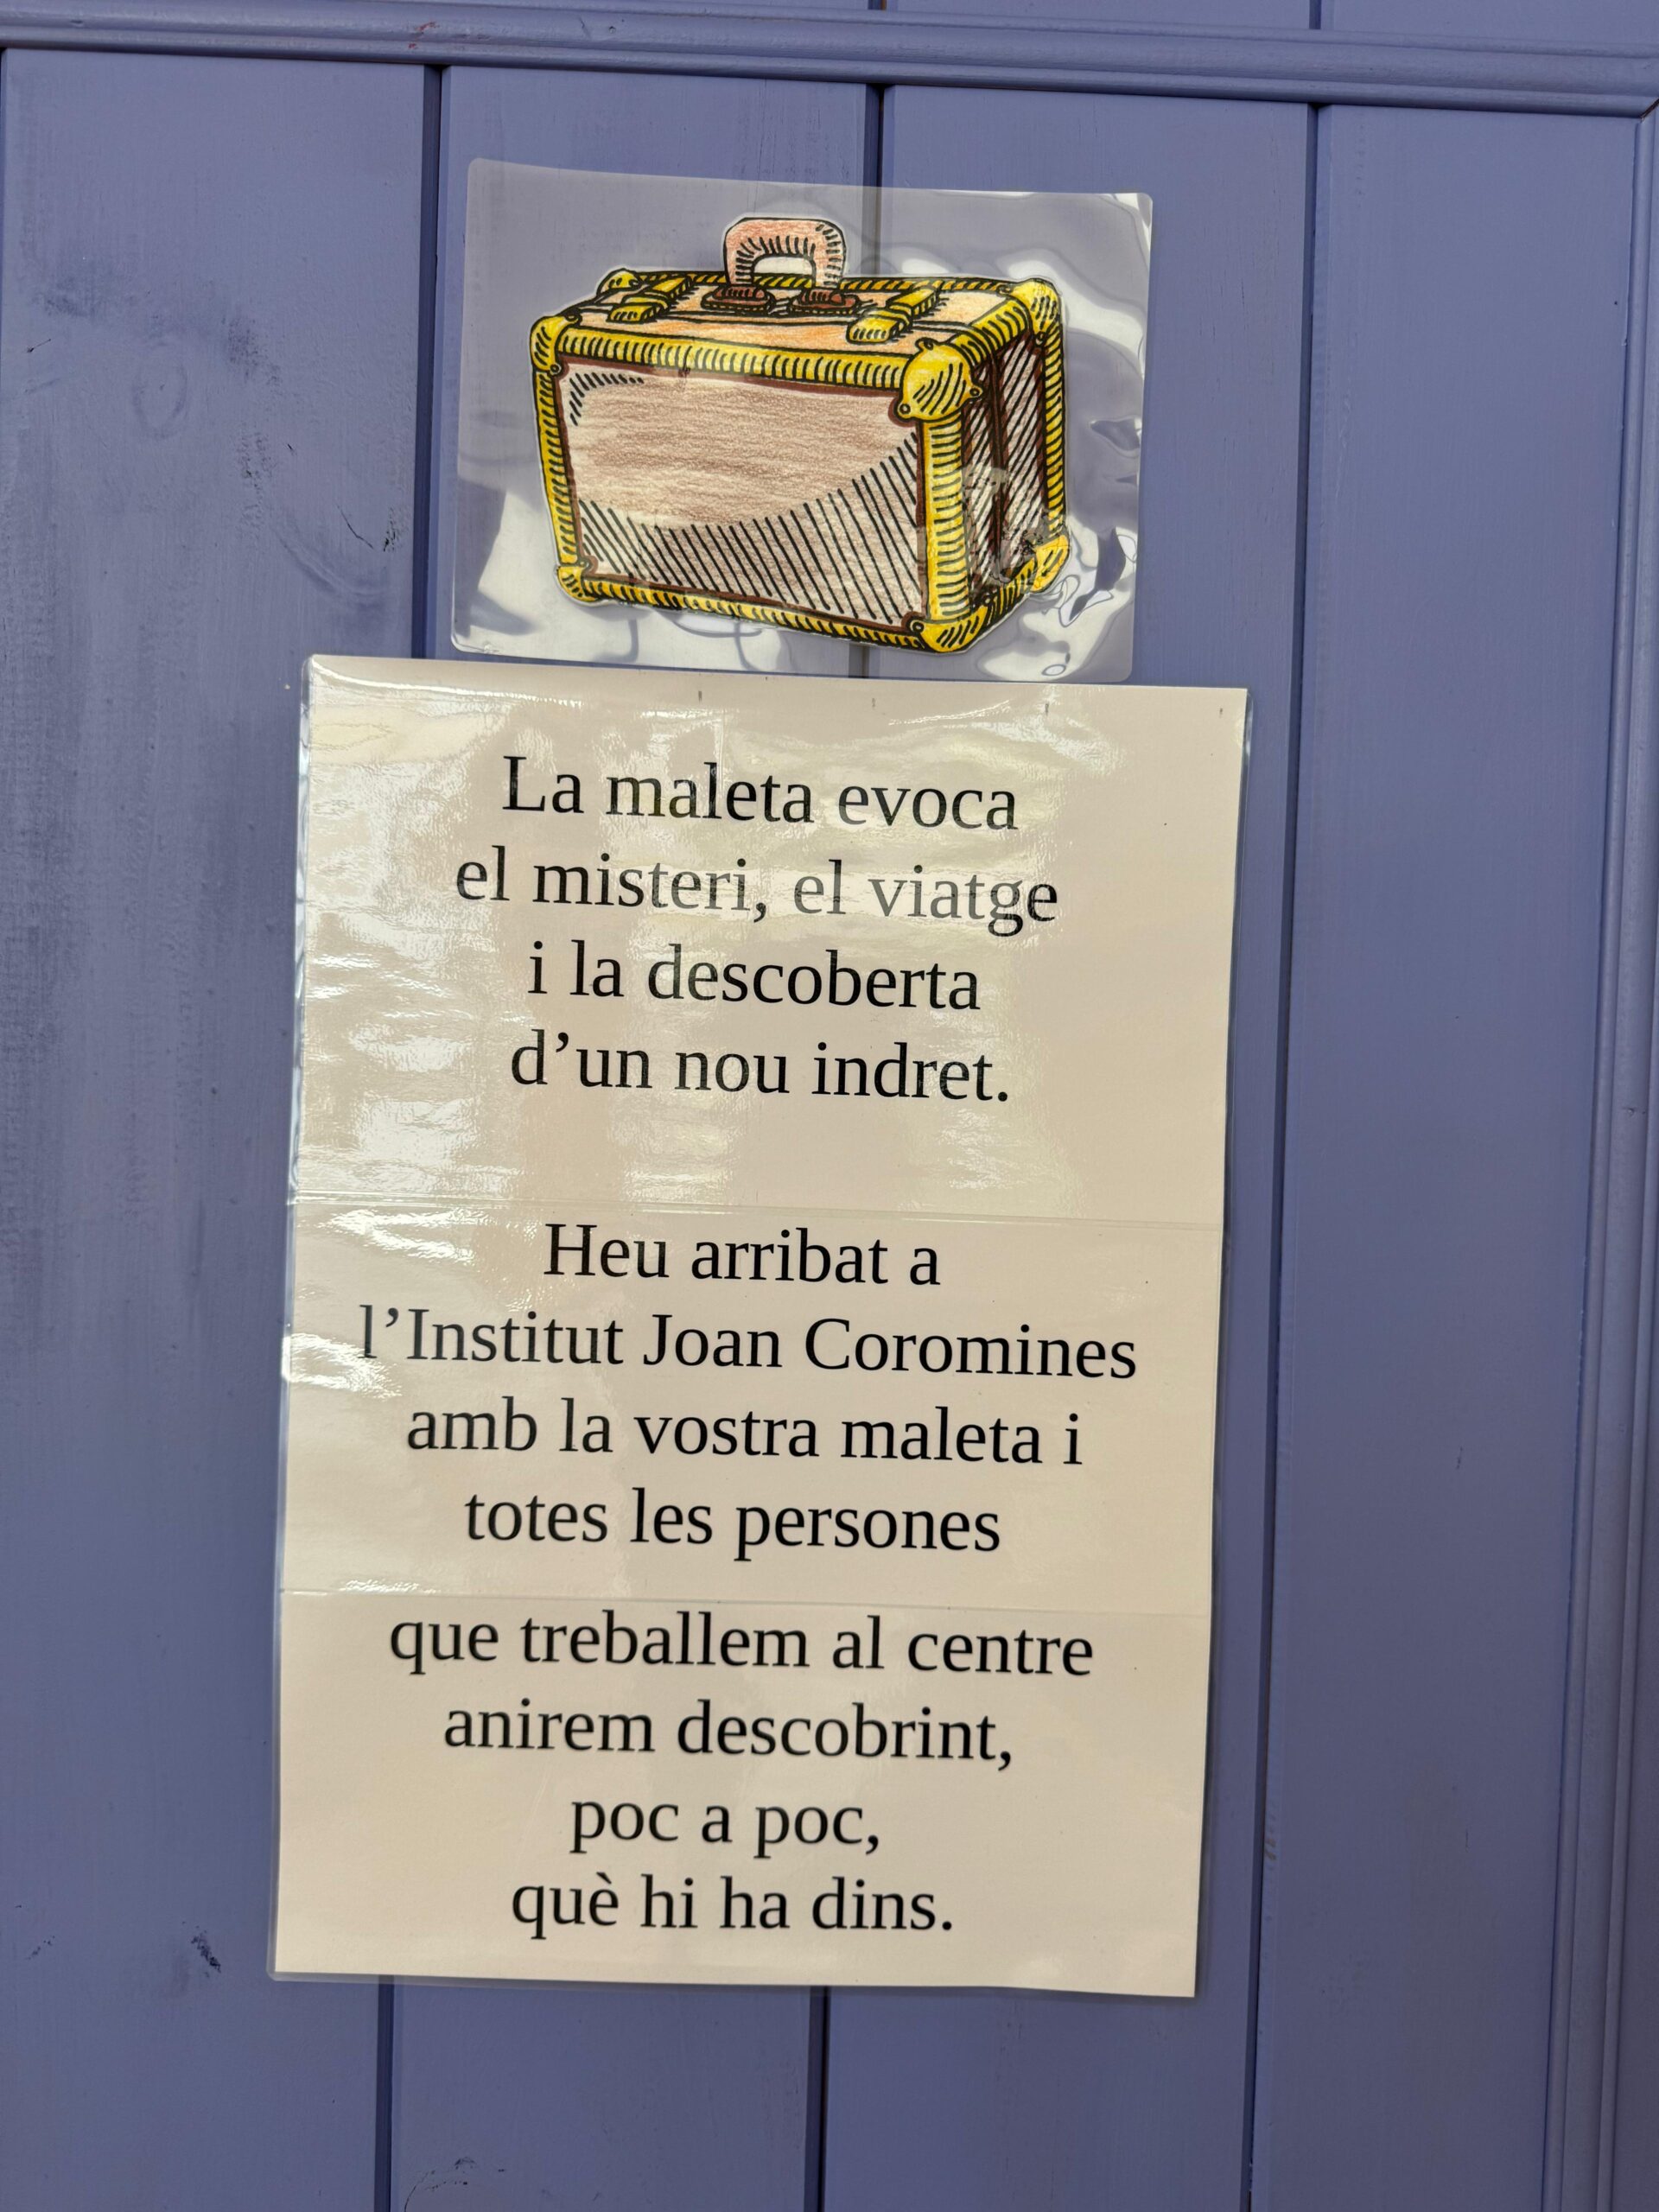 La maleta evoca
el misteri, el viatge
i la descoberta
d’un nou indret.
Heu arribat a
l’Institut Joan Coromines
amb la vostra maleta i
totes les persones
que treballem al centre
anirem descobrint,
poc a poc,
què hi ha dins.